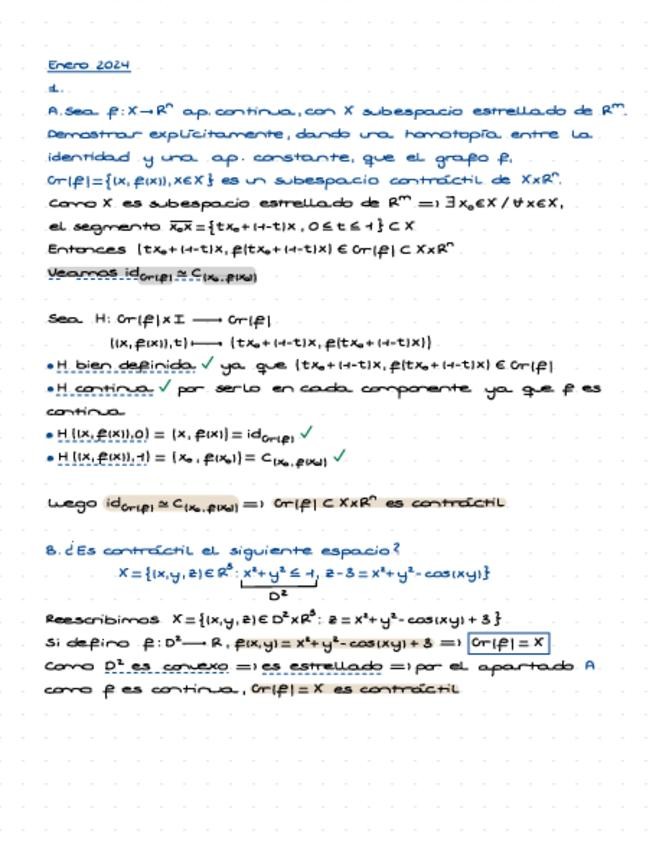 Enero 2024
1.
A. Sea f: X→Rⁿ ap. continua, con X subespacio estrellado de Rᵐ.
Demostrar explícitamente, dando una homotopía entre la
identidad y una ap. constante, que el grafo f,
Gr(f)={(x, f(x)), x∈X} es un subespacio contráctil de X×Rⁿ.
Como X es subespacio estrellado de Rᵐ => ∃x₀∈X / ∀x∈X,
el segmento x₀x = {tx₀+(1-t)x, 0≤t≤1} ⊂ X
Entonces (tx₀+(1-t)x, f(tx₀+(1-t)x) ∈ Gr(f) ⊂ X×Rⁿ
Veamos id_Gr(f) ≃ C_(x₀,f(x₀))
Sea H: Gr(f)×I ⟶ Gr(f)
((x, f(x)), t) ⟼ (tx₀+(1-t)x, f(tx₀+(1-t)x))
• H bien definida ✓ ya que (tx₀+(1-t)x, f(tx₀+(1-t)x) ∈ Gr(f)
• H continua ✓ por serlo en cada componente ya que f es
continua
• H((x, f(x)), 0) = (x, f(x)) = id_Gr(f) ✓
• H((x, f(x)), 1) = (x₀, f(x₀)) = C_(x₀,f(x₀)) ✓
Luego id_Gr(f) ≃ C_(x₀,f(x₀)) => Gr(f) ⊂ X×Rⁿ es contráctil
B. ¿Es contráctil el siguiente espacio?
X={(x,y,z)∈R³: x²+y² ≤ 1, z-3=x²+y²-cos(xy)}
D²
Reescribimos X={(x,y,z)∈D²×R³: z=x²+y²-cos(xy)+3}
Si defino f: D² ⟶ R, f(x,y)=x²+y²-cos(xy)+3 => Gr(f)=X
Como D² es convexo => es estrellado => por el apartado A
como f es continua, Gr(f)=X es contráctil